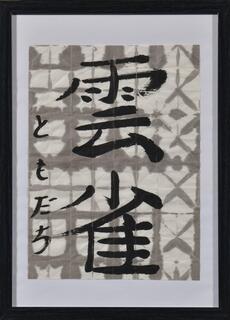 雲雀
ともだち